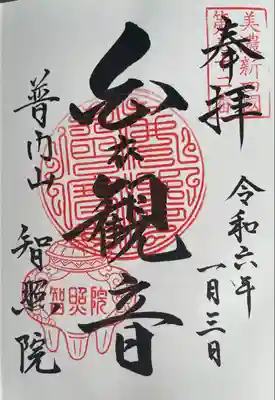 奉拝
美濃新四国
令和六年
一月三日
白衣観音
普門山
智照院
智照院